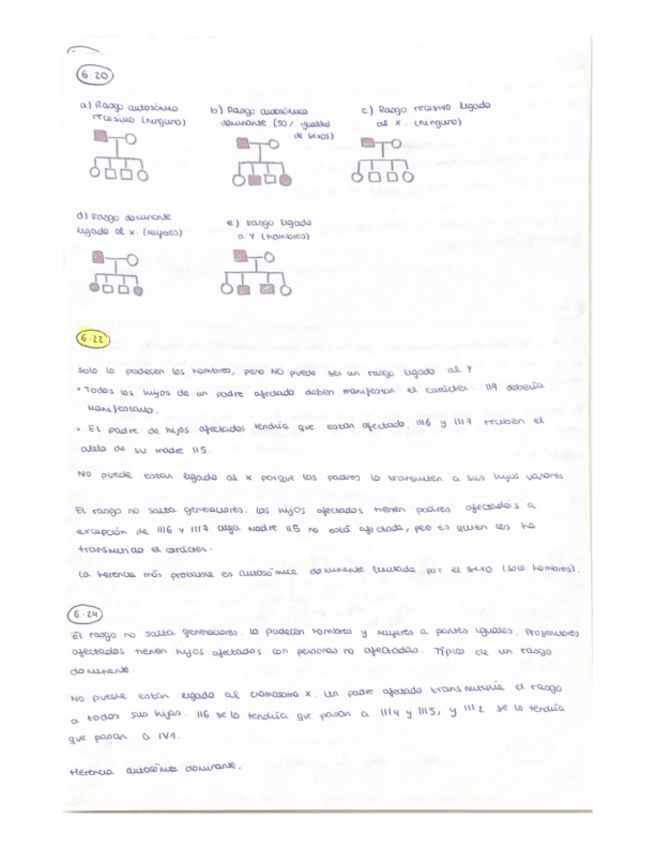 6.20
a) Rasgo autosómico recesivo (ninguno)
b) Rasgo autosómico dominante (50/ igualdad de sexos)
c) Rasgo recesivo ligado al X. (ninguno)
d) Rasgo dominante ligado al X. (mujeres)
e) Rasgo ligado a Y (hombres)
6.22
Solo lo padecen los hombres, pero NO puede ser un rasgo ligado al Y.
• Todos los hijos de un padre afectado deben manifestar el carácter. II9 debería
manifestarlo.
• El padre de hijos afectados tendría que estar afectado. III6 y III7 reciben el
alelo de su madre II5.
No puede estar ligado al X porque los padres lo transmiten a sus hijos varones.
El rasgo no salta generaciones. Los hijos afectados tienen padres afectados a
excepción de III6 y III7 cuya madre II5 no está afectada, pero es quien les ha
transmitido el carácter.
La herencia más probable es autosómica dominante limitada por el sexo (solo hombres).
6.24
El rasgo no salta generaciones. Lo padecen hombres y mujeres a partes iguales. Progenitores
afectados tienen hijos afectados con personas no afectadas. Típico de un rasgo
dominante.
No puede estar ligado al cromosoma X. Un padre afectado transmitiría el rasgo
a todas sus hijas. II6 se lo tendría que pasar a III4 y III5, y III2 se lo tendría
que pasar a IV1.
Herencia autosómica dominante.